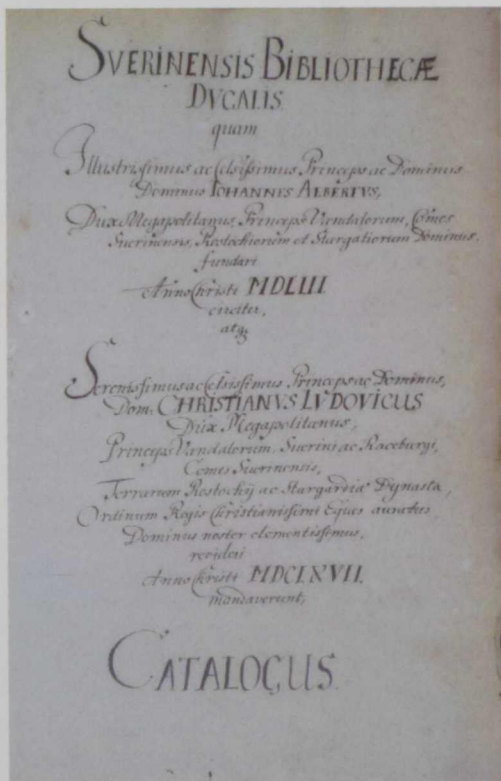 SVERINENSIS BIBLIOTHECÆ
DVCALIS
quam
Illustrissimus ac Celsissimus Princeps ac Dominus
Dominus IOHANNES ALBERTVS,
Dux Megapolitanus, Princeps Vandalorum, Comes
Suerinensis, Rostochiorum et Stargatiorum Dominus,
fundari
Anno Christi MDLIII
circiter,
atq;
Serenissimus ac Celsissimus Princeps ac Dominus,
Dom. CHRISTIANVS LVDOVICUS
Dux Megapolitanus,
Princeps Vandalorum Suerini ac Raceburgi,
Comes Suerinensis,
Terrarum Rostochij ac Stargardiæ Dynasta,
Ordinum Regis Christianissimi Eques auratus
Dominus noster clementissimus,
revideri
Anno Christi MDCLXVII.
mandaverunt,
CATALOGUS.